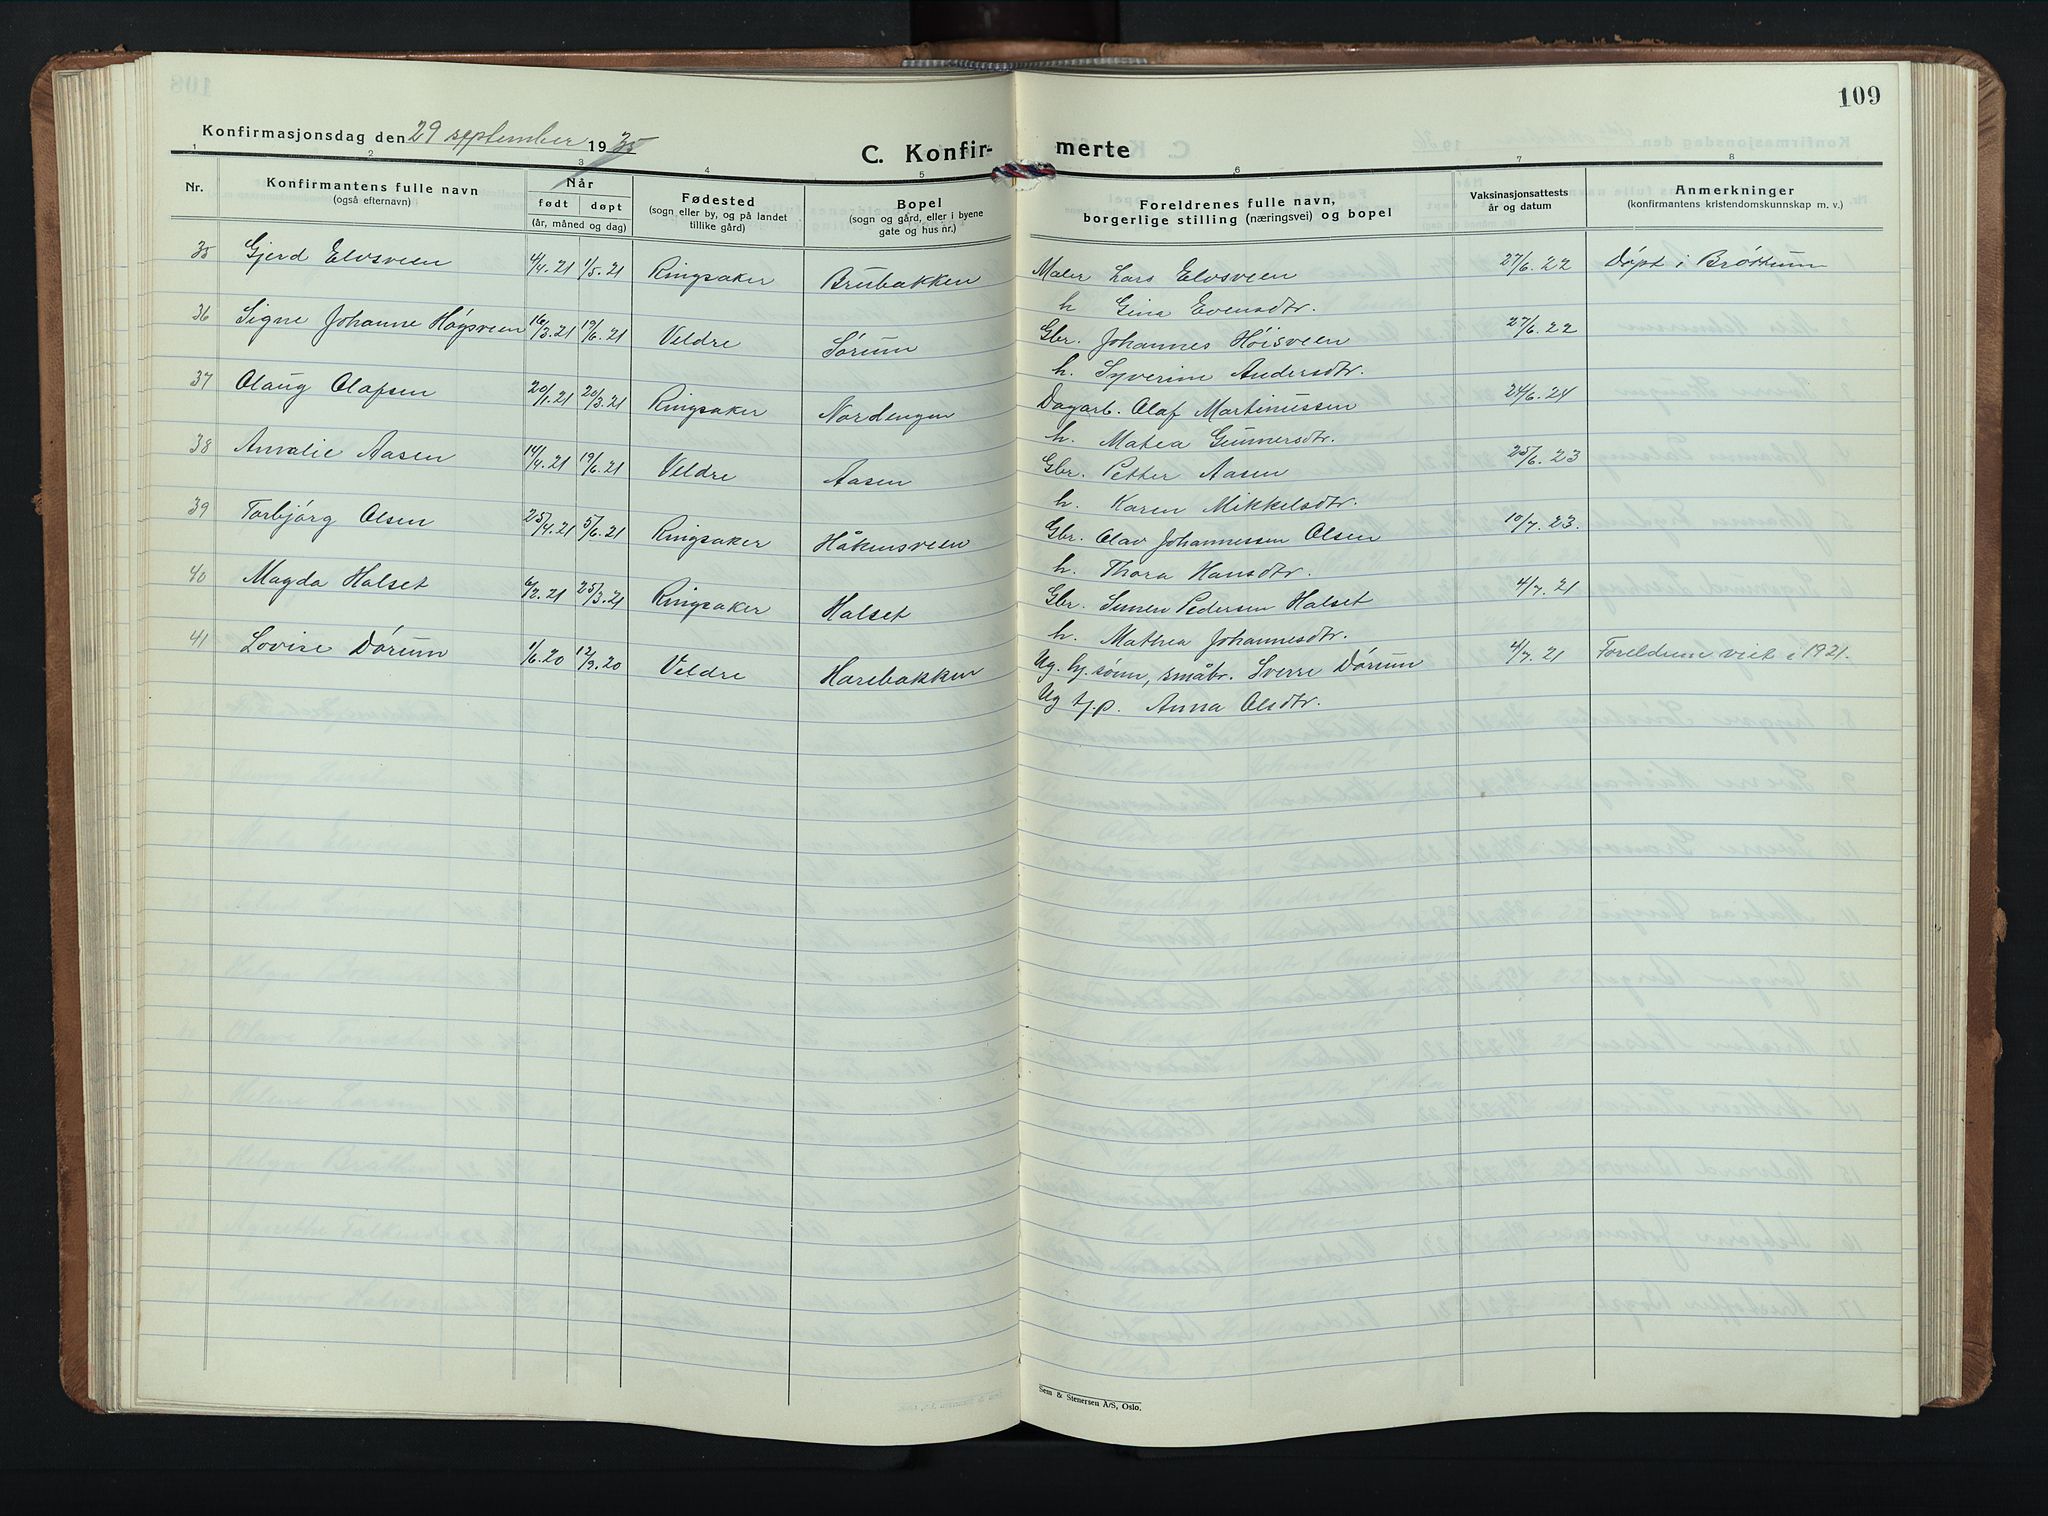 109
Konfirmasjonsdag den 29 september 1935
C. Konfirmerte
1 2 3 4 5 6 7 8
Nr. Konfirmantens fulle navn (også efternavn) Når født døpt (år, måned og dag) Fødested (sogn eller by, og på landet tillike gård) Bopel (sogn og gård, eller i byene gate og hus nr.) Foreldrenes fulle navn, borgerlige stilling (næringsvei) og bopel Vaksinasjonsattests år og datum Anmerkninger (konfirmantens kristendomskunnskap m. v.)
35 Gjerd Elvsveen 4/4.21 1/5.21 Ringsaker Brubakken Maler Lars Elvsveen 27/6.22 Døpt i Brøttum
h Gina Evensdtr.
36 Signe Johanne Høgsveen 16/3.21 19/6.21 Veldre Sørum Gbr. Johannes Höisveen 27/6.22
h. Syverine Andersdtr.
37 Olaug Olafsen 20/1.21 20/3.21 Ringsaker Nordengen Dagarb. Olaf Martinussen 24/6.24
h. Matea Gunnersdtr.
38 Amalie Aasen 14/4.21 19/6.21 Veldre Aasen Gbr. Petter Aasen 25/6.23
h. Karen Mikkelsdtr.
39 Torbjörg Olsen 25/4.21 5/6.21 Ringsaker Håkensveen Gbr. Olav Johannessen Olsen 10/7.23.
h. Thora Hansdtr.
40 Magda Halset 6/2.21 25/3.21 Ringsaker Halset Gbr. Simen Pedersen Halset 4/7.21
h. Mathea Johannesdtr.
41 Lovise Dørum 1/6.20 12/9.20 Veldre Harebakken Ug. hj. sønn, småbr. Sverre Dørum 4/7.21 Foreldrene viet i 1921.
Ug tj.p. Anna Olsdtr.
Sem & Stenersen A/S, Oslo.